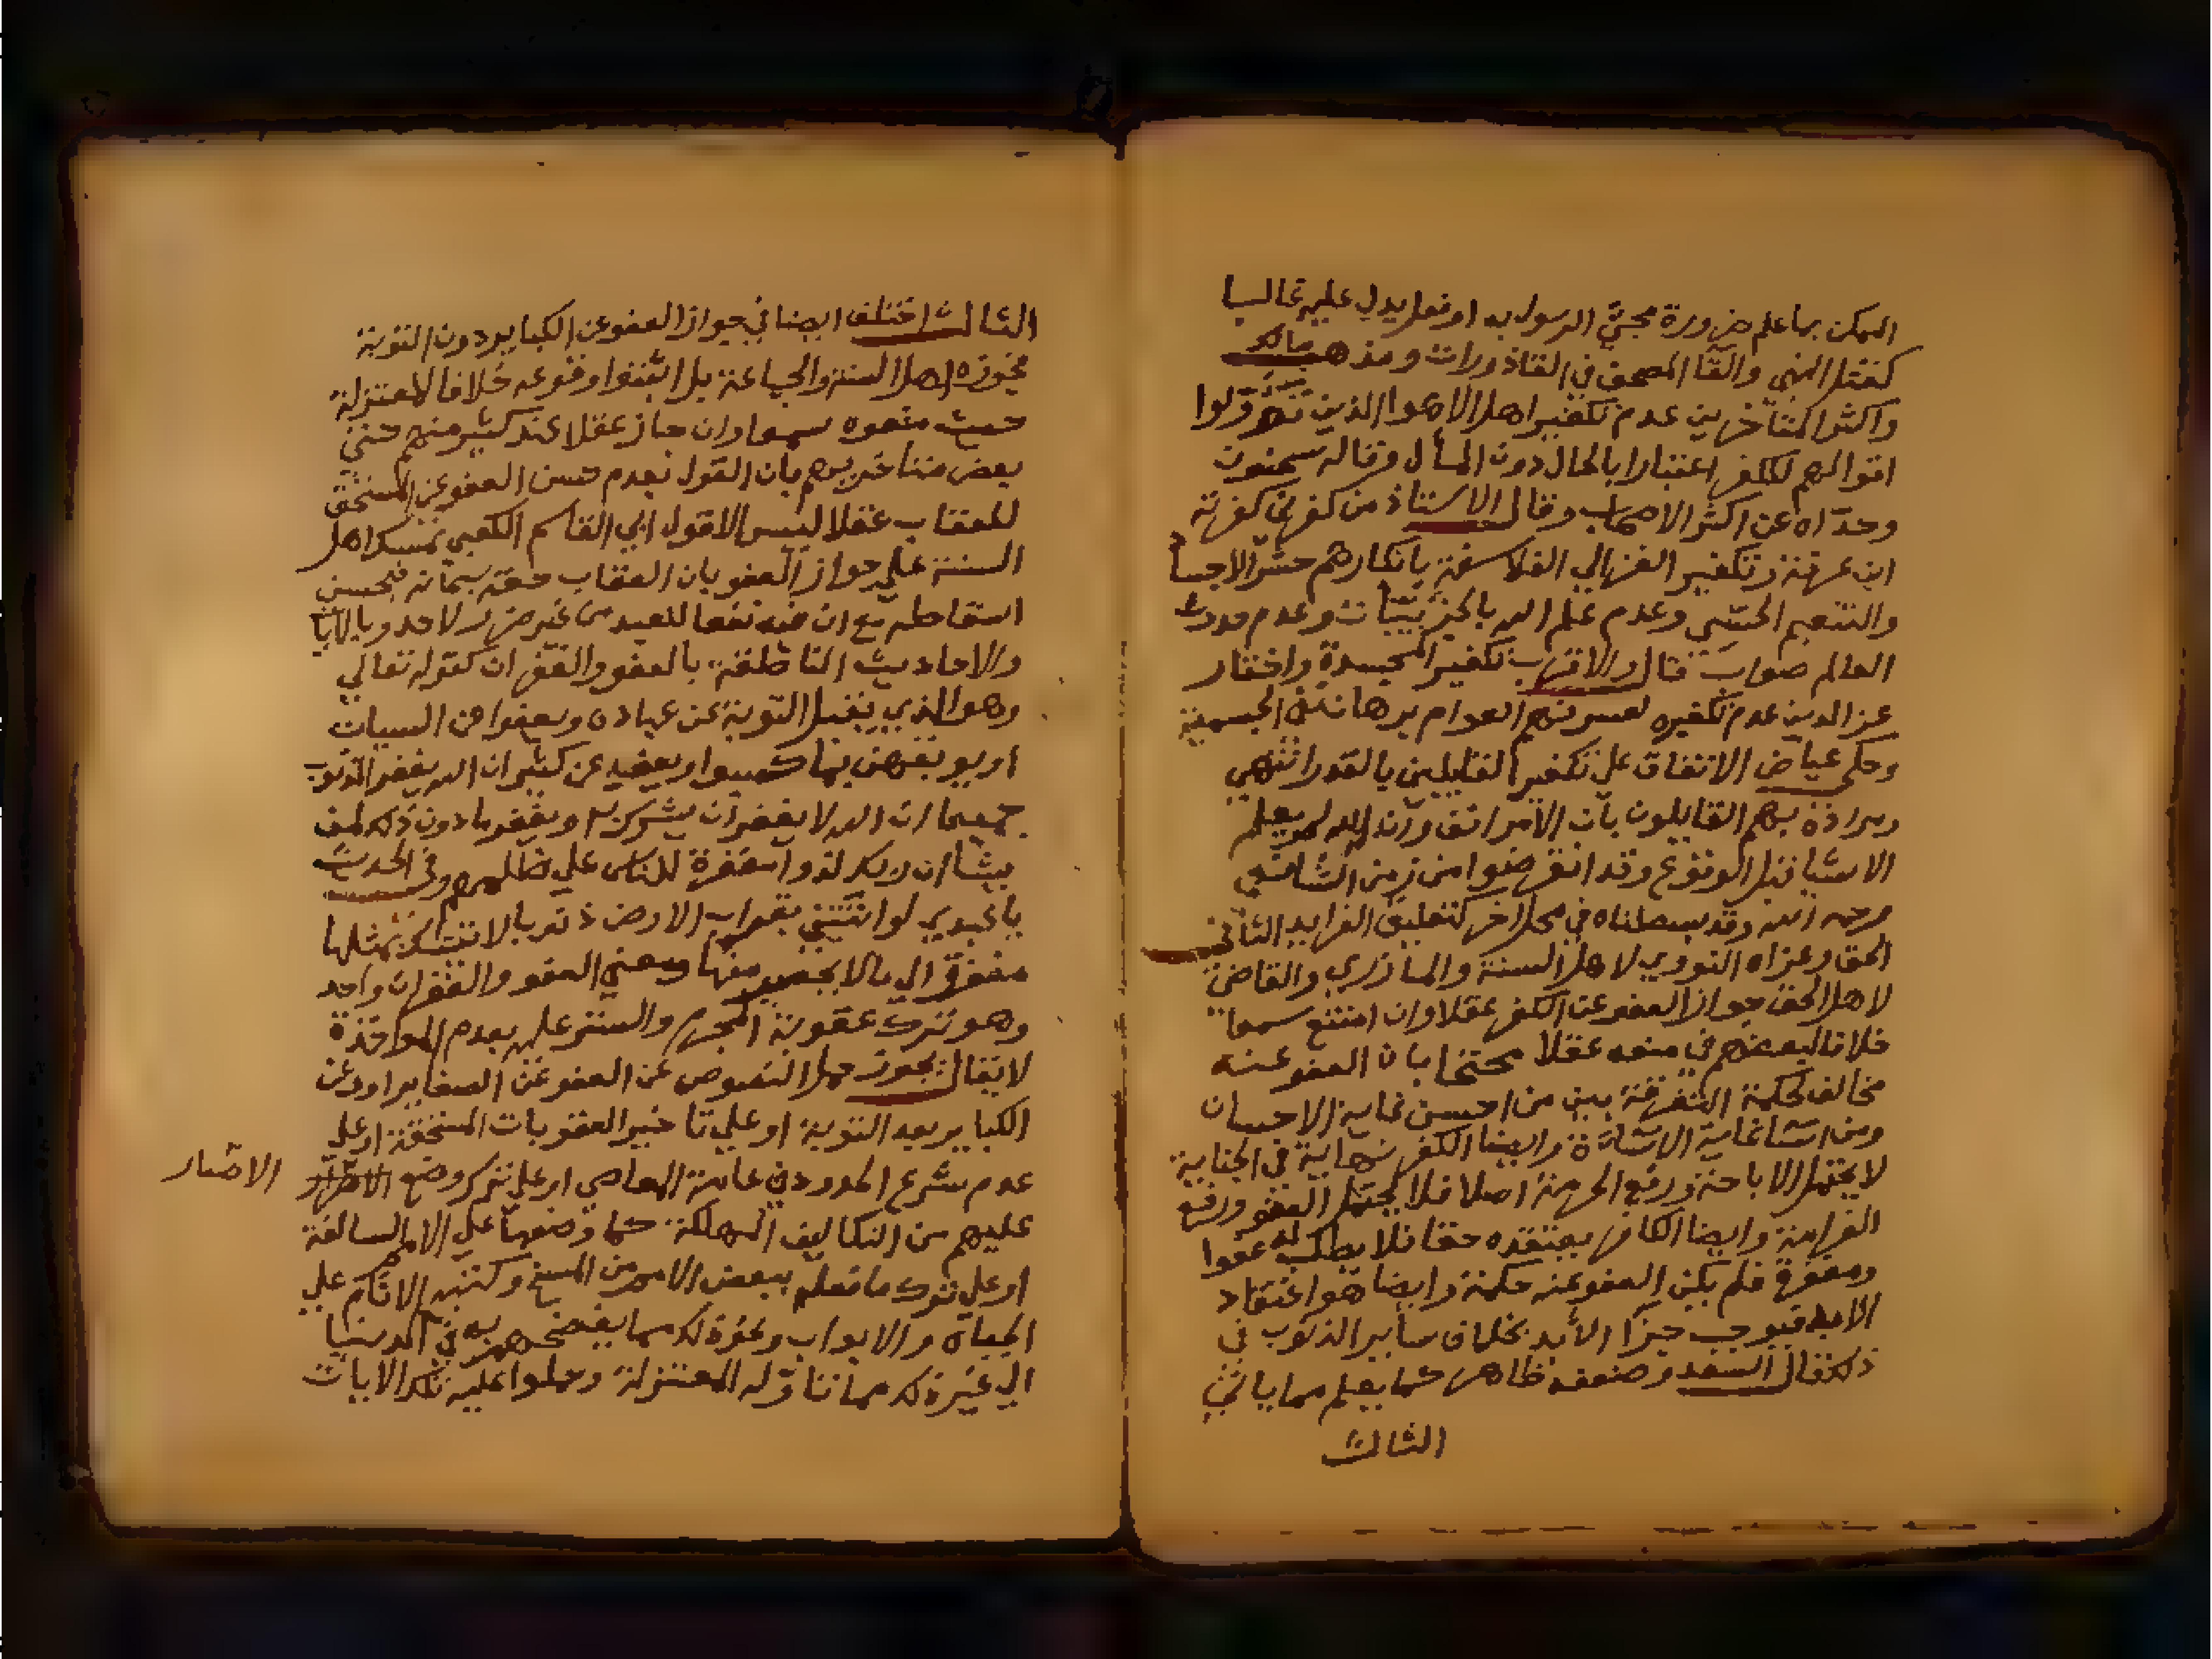 الممكن بما علم ضرورة مجيَّ الرسول به او فعل يدل عليه غالبا
كقتل النبي والقا المصحف في القاذورات ومذهب مالك
واكثر المتأخرين عدم تكفير اهل الاهوا الذين تَئُوَّلوا
اقوالهم للكفر اعتبارا بالحال دون المأل وقاله سحنون
وحداه عن اكثر الاصحاب وقال الاستاذ من كفرني كفرته
ابن عرفة وتكفير الغزالي الفلاسفة بانكارهم حشر الاجساد
والتنعيم الحسّي وعدم علم الله بالجزئيات وعدم حدوث
العالم صواب قال والاقرب تكفير المجسدة واختار
عز الدين عدم تكفيره لعسر فهم العوام برهان نفي الجسمية
وحكى عياض الاتفاق على تكفير القايلين بالقدر انتهي
ومراده بهم القايلون بان الامر انف وان الله لم يعلم
الاشيا قبل الوقوع وقد انقرضوا من زمن الشافعي
رحمه الله وقد بسطناه في محل اخر كتعليق الفرايد الثاني
الحق وعزاه النووي لاهل السنة والمازري والقاضي
لاهل الحق جواز العفو عن الكفر عقلا وان امتنع سمعا
خلافا لبعضهم في منعه عقلا محتجا بان العفو عنه
مخالف لحكمة التفرقة بين من احسن غاية الاحسان
ومن اسا غاية الاسّاة وايضا الكفر نهاية في الجناية
لا يحتمل الاباحة ورفع الحرمة اصلا فلا يحتمل العفو ورفع
الغرامة وايضا الكافر يعتقده حقا فلا يطلب له عفوا
ومغفرة فلم يكن العفو عنه حكمة وايضا هو اعتقاد
الابد فيوجب جزآ الأبد بخلاف سأير الذنوب في
ذلك قال السعد وضعفه ظاهر كما يعلم مما ياتي
الثالث
الثالث اختلف ايضا في جواز العفو عن الكباير دون التوبة
فجوزه اهل السنة والجماعة بل اثبتوا وقوعه خلافا للمعتزلة
حيث منعوه سمعا وان جاز عقلا عند كثير منهم حتي
بعض متاخريهم بان القول بعدم حسن العفو عن المستحق
للعقاب عقلا ليس الا قول ابي القاسم الكعبي تمسك اهل
السنة علي جواز العفو بان العقاب حقه سبحانه فيحسن
اسقاطه مع ان فيه نفعا للعبد من غير ضرر لاحد وبالآيات
والاحاديث الناطقة بالعفو والغفران كقوله تعالي
وهو الذي يقبل التوبة عن عباده ويعفوا عن السيات
او يوبقهن بما كسبوا ويعف عن كثير ان الله يغفر الذنوب
جميعا ان الله لا يغفر ان يشرك به ويغفر ما دون ذلك لمن
يشا ان ربك لذو مغفرة للناس علي ظلمهم وفي الحديث
يا عبدي لو اتيتني بقراب الارض ذنوبا لاتيتك بمثلها
مغفرة الي ما لا يحصي منها ومعني العفو والغفران واحد
وهو ترك عقوبة المجرم والستر عليه بعدم المواخذة
لا يقال يجوز حمل النصوص عن العفو عن الصغاير او عن
الكباير بعد التوبة او علي تاخير العقوبات المستحقة او علي
عدم شرع الحدود في عامة المعاصي او علي ترك وضع
الاصار
عليهم من التكاليف المهلكة كما وضعها علي الامم السالفة
او علي ترك ما فعله ببعض الامم من المسخ وكتبه الآثام علي
الجباه والابواب ونحو ذلك مما يفضحهم به في الدنيا
الي غير ذلك مما تأوّله المعتزلة وحملوا عليه تلك الايات